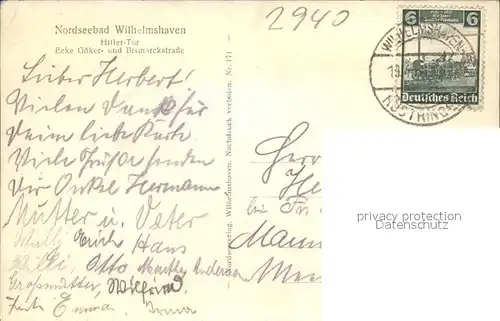 Nordseebad Wilhelmshaven
Hitler-Tor
Ecke Göker- und Bismarckstraße
2940
6 6
Deutsches Reich
WILHELMSHAVEN
RÜSTRINGEN
Lieber Herbert!
Vielen Dank für
Deine liebe Karte
Viele Grüße senden
Dir Onkel Hermann
Mutter u. Vater
Erich Hans
Willi, Otto Martha Andersen
Großmutter, Wilfried
Emma, Irma
Wilhelmshaven. Nachdruck verboten. Nr. 171
Herr
He
bei Fr
Mann
privacy protection
www.AnsichtskartenVersand.com